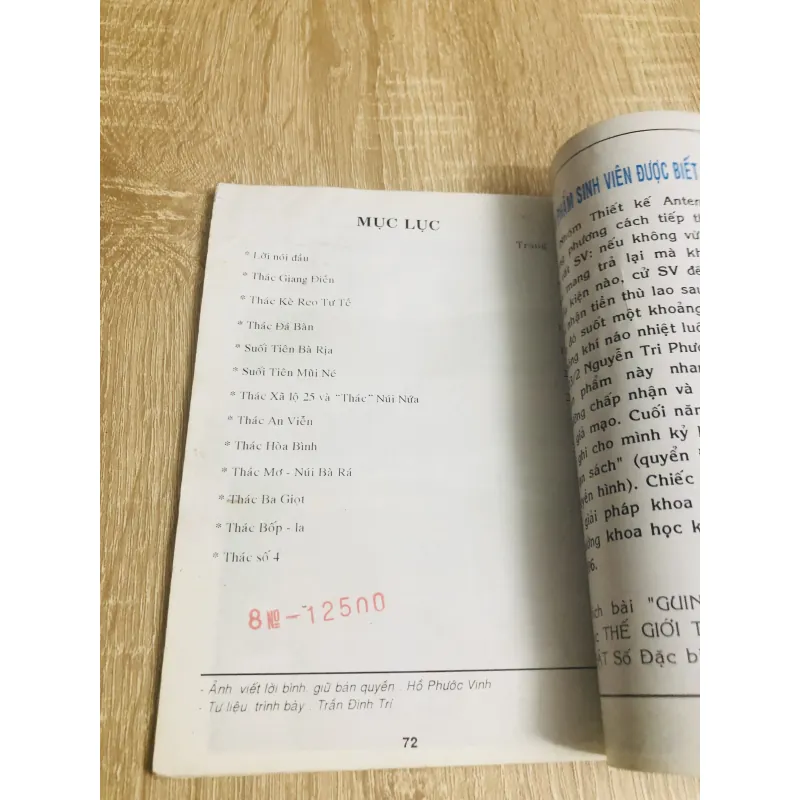 MỤC LỤC
Trang
* Lời nói đầu
* Thác Giang Điền
* Thác Kè Reo Tư Tề
* Thác Đá Bàn
* Suối Tiên Bà Rịa
* Suối Tiên Mũi Né
* Thác Xã lộ 25 và "Thác" Núi Nứa
* Thác An Viễn
* Thác Hòa Bình
* Thác Mơ - Núi Bà Rá
* Thác Ba Giọt
* Thác Bốp - la
* Thác số 4
8 № - 12500
- Ảnh viết lời bình giữ bản quyền . Hồ Phước Vinh
- Tư liệu trình bày . Trần Đình Trí
72
PHẨM SINH VIÊN ĐƯỢC BIẾT
Nhóm Thiết kế Anten
phương cách tiếp th
SV: nếu không vừ
mang trả lại mà kh
kiện nào, cử SV đế
nhận tiền thù lao sau
đó suốt một khoảng
khí náo nhiệt luô
3/2 Nguyễn Tri Phươ
phẩm này nhan
chấp nhận và
giả mạo. Cuối năm
ghi cho mình kỷ l
sách" (quyển
hình). Chiếc
giải pháp khoa
khoa học k
6.
bài "GUIN
THẾ GIỚI T
Số Đặc bi